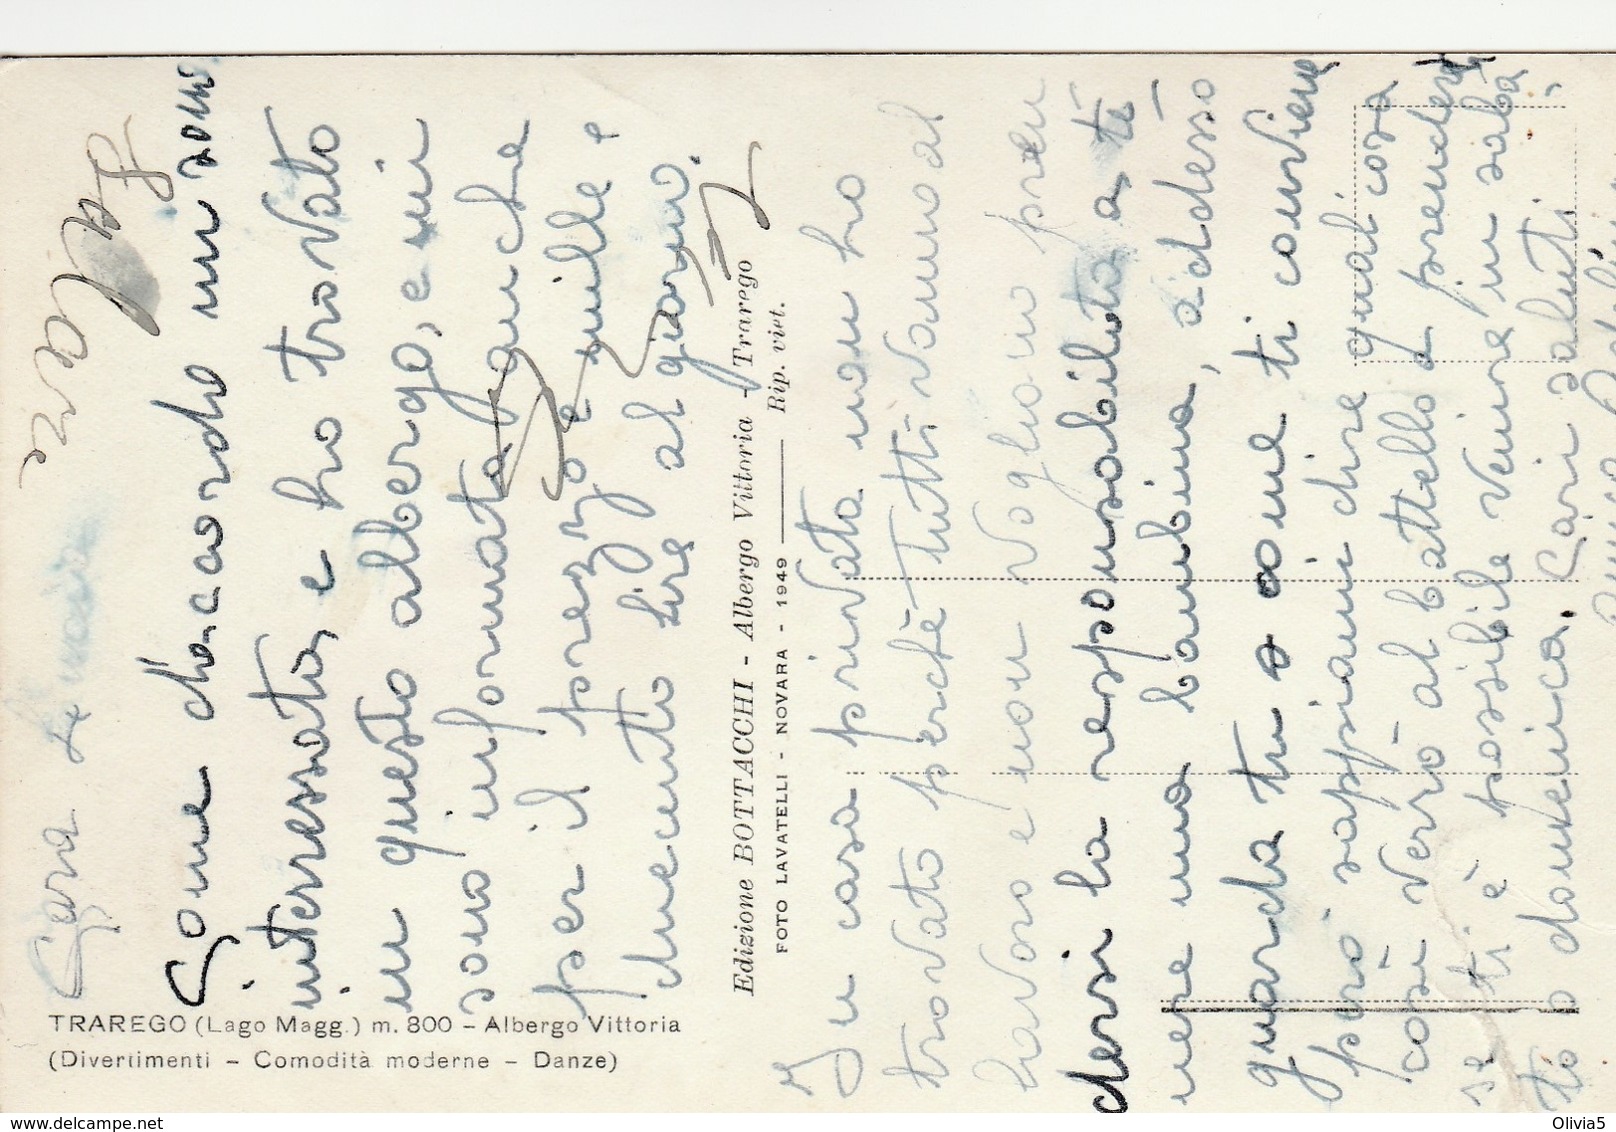 Cara
Come d'accordo mi sono
interessata, e ho trovato
in questo albergo, e mi
sono informata anche
per il prezzo e mille e
duecento Lire al giorno.
TRAREGO (Lago Magg.) m. 800 - Albergo Vittoria
(Divertimenti - Comodità moderne - Danze)
Edizione BOTTACCHI - Albergo Vittoria - Trarego
FOTO LAVATELLI - NOVARA - 1949 Rip. viet.
In casa privata non ho
trovato perchè tutti vanno al
lavoro e non vogliono pren
dersi la responsabilità, a te
nere una bambina, adesso
guarda tu come ti conviene
però sappiami dire qual cosa
così verrò al battello a prendert
se ti è possibile venire in saba
to o domenica. Cari saluti
delcampe.net
Olivia5